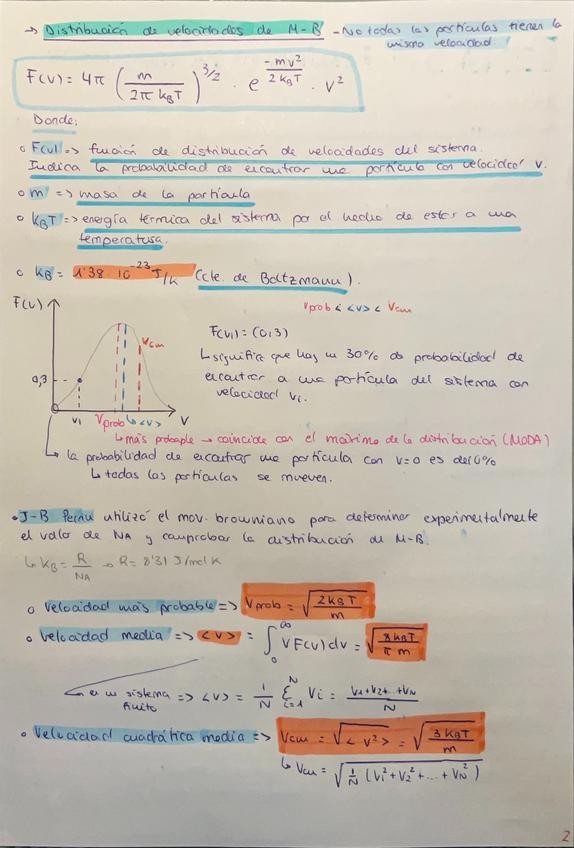 → Distribución de velocidades de M-B - No todas las partículas tienen la
misma velocidad.
F(v) = 4π (m / 2π k_BT)^3/2 · e^(-mv²/2k_BT) · v²
Donde:
o F(v) => función de distribución de velocidades del sistema.
Indica la probabilidad de encontrar una partícula con velocidad v.
o m => masa de la partícula
o k_BT => energía térmica del sistema por el hecho de estar a una
temperatura.
o k_B = 1'38 10^-23 J/K (cte. de Boltzmann).
v_prob < <v> < v_cm
F(v)
v_cm
0,3
v₁ v_prob ↳<v> v
F(v₁) = (0,3)
↳ significa que hay un 30% de probabilidad de
encontrar a una partícula del sistema con
velocidad v₁.
↳ más probable → coincide con el máximo de la distribución (MODA)
↳ la probabilidad de encontrar una partícula con v=0 es del 0%
↳ todas las partículas se mueven.
• J-B Perrin utilizó el mov. browniano para determinar experimentalmente
el valor de NA y comprobar la distribución de M-B.
↳ K_B = R/NA → R = 8'31 J/mol K
o Velocidad más probable => v_prob = √(2k_BT / m)
o Velocidad media => <v> = ∫₀^∞ v F(v) dv = √(8k_BT / π m)
en un sistema finito => <v> = 1/N Σ_{i=1}^N v_i = (v₁+v₂+...+v_N) / N
o Velocidad cuadrática media => v_cm = √<v²> = √(3k_BT / m)
↳ v_cm = √(1/N (v₁² + v₂² + ... + v_N²))
2